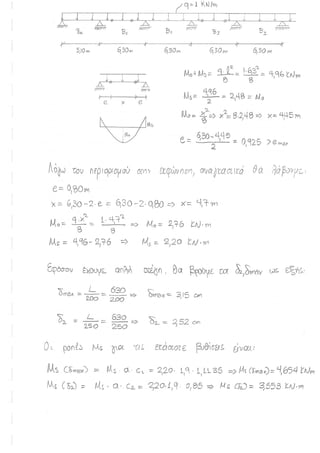 q=1 KN/m
B₀ B₁ B₂ B₃
6,30m 6,30m 6,30m
M₀+Mₛ = q·l²/8 = 1·6,3²/8 = 4,96 KN/m
Mₛ = 4,96/2 = 2,48 = M₀
M₀ = x²/8 ⇔ x² = 8·2,48 ⇔ x = 4,45m
e x e
e = 6,30-4,45/2 = 0,925 > eₘₐₓ
Λόγω του περιορισμού στην εκφώνηση, αναγκαστικά θα λάβουμε:
e = 0,80m
x = 6,30-2·e = 6,30-2·0,80 ⇒ x = 4,7m
M₀ = q·x²/8 = 1·4,7²/8 ⇒ M₀ = 2,76 KN·m
Mₛ = 4,96-2,76 ⇒ Mₛ = 2,20 KN·m
Εφόσον έχουμε απλή στέγη, θα βρούμε τα δ₂, δmax ως εξής:
δmax = L/200 = 630/200 ⇒ δmax = 3,15 cm
δ₂ = L/250 = 630/250 ⇒ δ₂ = 2,52 cm
Οι ροπές Mₛ για τις εκάστοτε βυθίσεις είναι:
Mₛ (δmax) = Mₛ · a · c₁ = 2,20 · 1,9 · 1,1135 ⇒ Mₛ(δmax) = 4,654 KN/m
Mₛ (δ₂) = Mₛ · a · c₂ = 2,20 · 1,9 · 0,85 ⇒ Mₛ (δ₂) = 3,553 KN/m